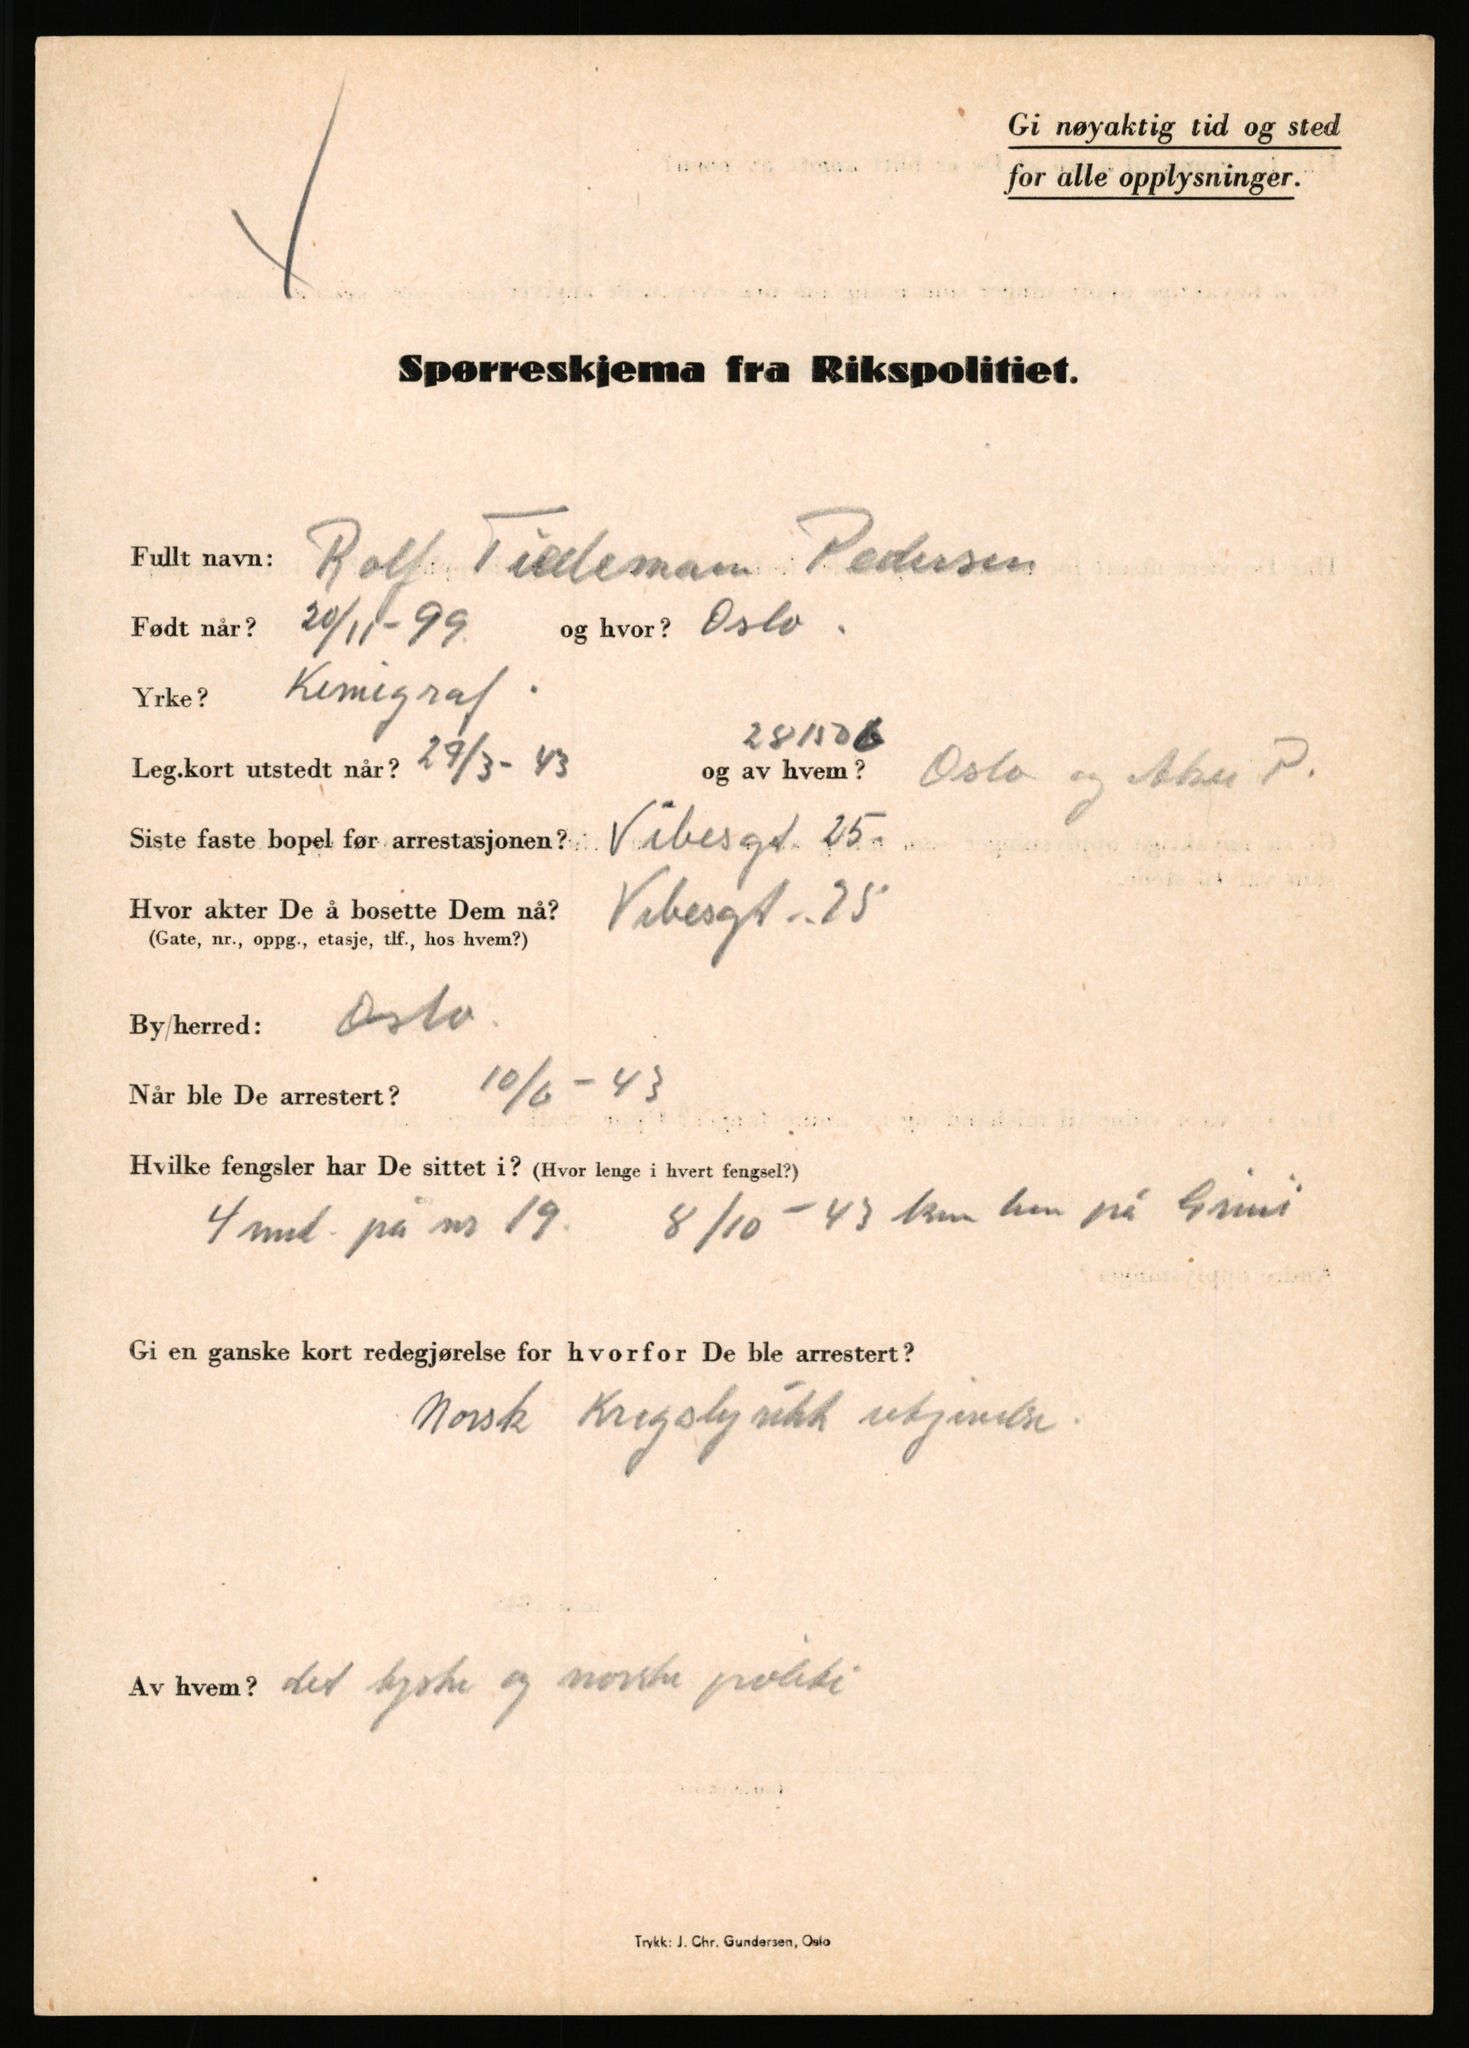 Gi nøyaktig tid og sted
for alle opplysninger.
Spørreskjema fra Rikspolitiet.
Fullt navn: Rolf Tiedemann Pedersen
Født når? 20/11-99 og hvor? Oslo.
Yrke? Kemigraf.
281506
Leg.kort utstedt når? 29/3-43 og av hvem? Oslo og Aker P.
Siste faste bopel før arrestasjonen? Vibesgt. 25.
Hvor akter De å bosette Dem nå? Vibesgt. 25
(Gate, nr., oppg., etasje, tlf., hos hvem?)
By/herred: Oslo.
Når ble De arrestert? 10/6-43
Hvilke fengsler har De sittet i? (Hvor lenge i hvert fengsel?)
4 mnd. på nr 19. 8/10-43 kom hen på Grini
Gi en ganske kort redegjørelse for hvorfor De ble arrestert?
Norsk Krigslyrikk utgivelse.
Av hvem? det tyske og norske politi
Trykk: J. Chr. Gundersen, Oslo